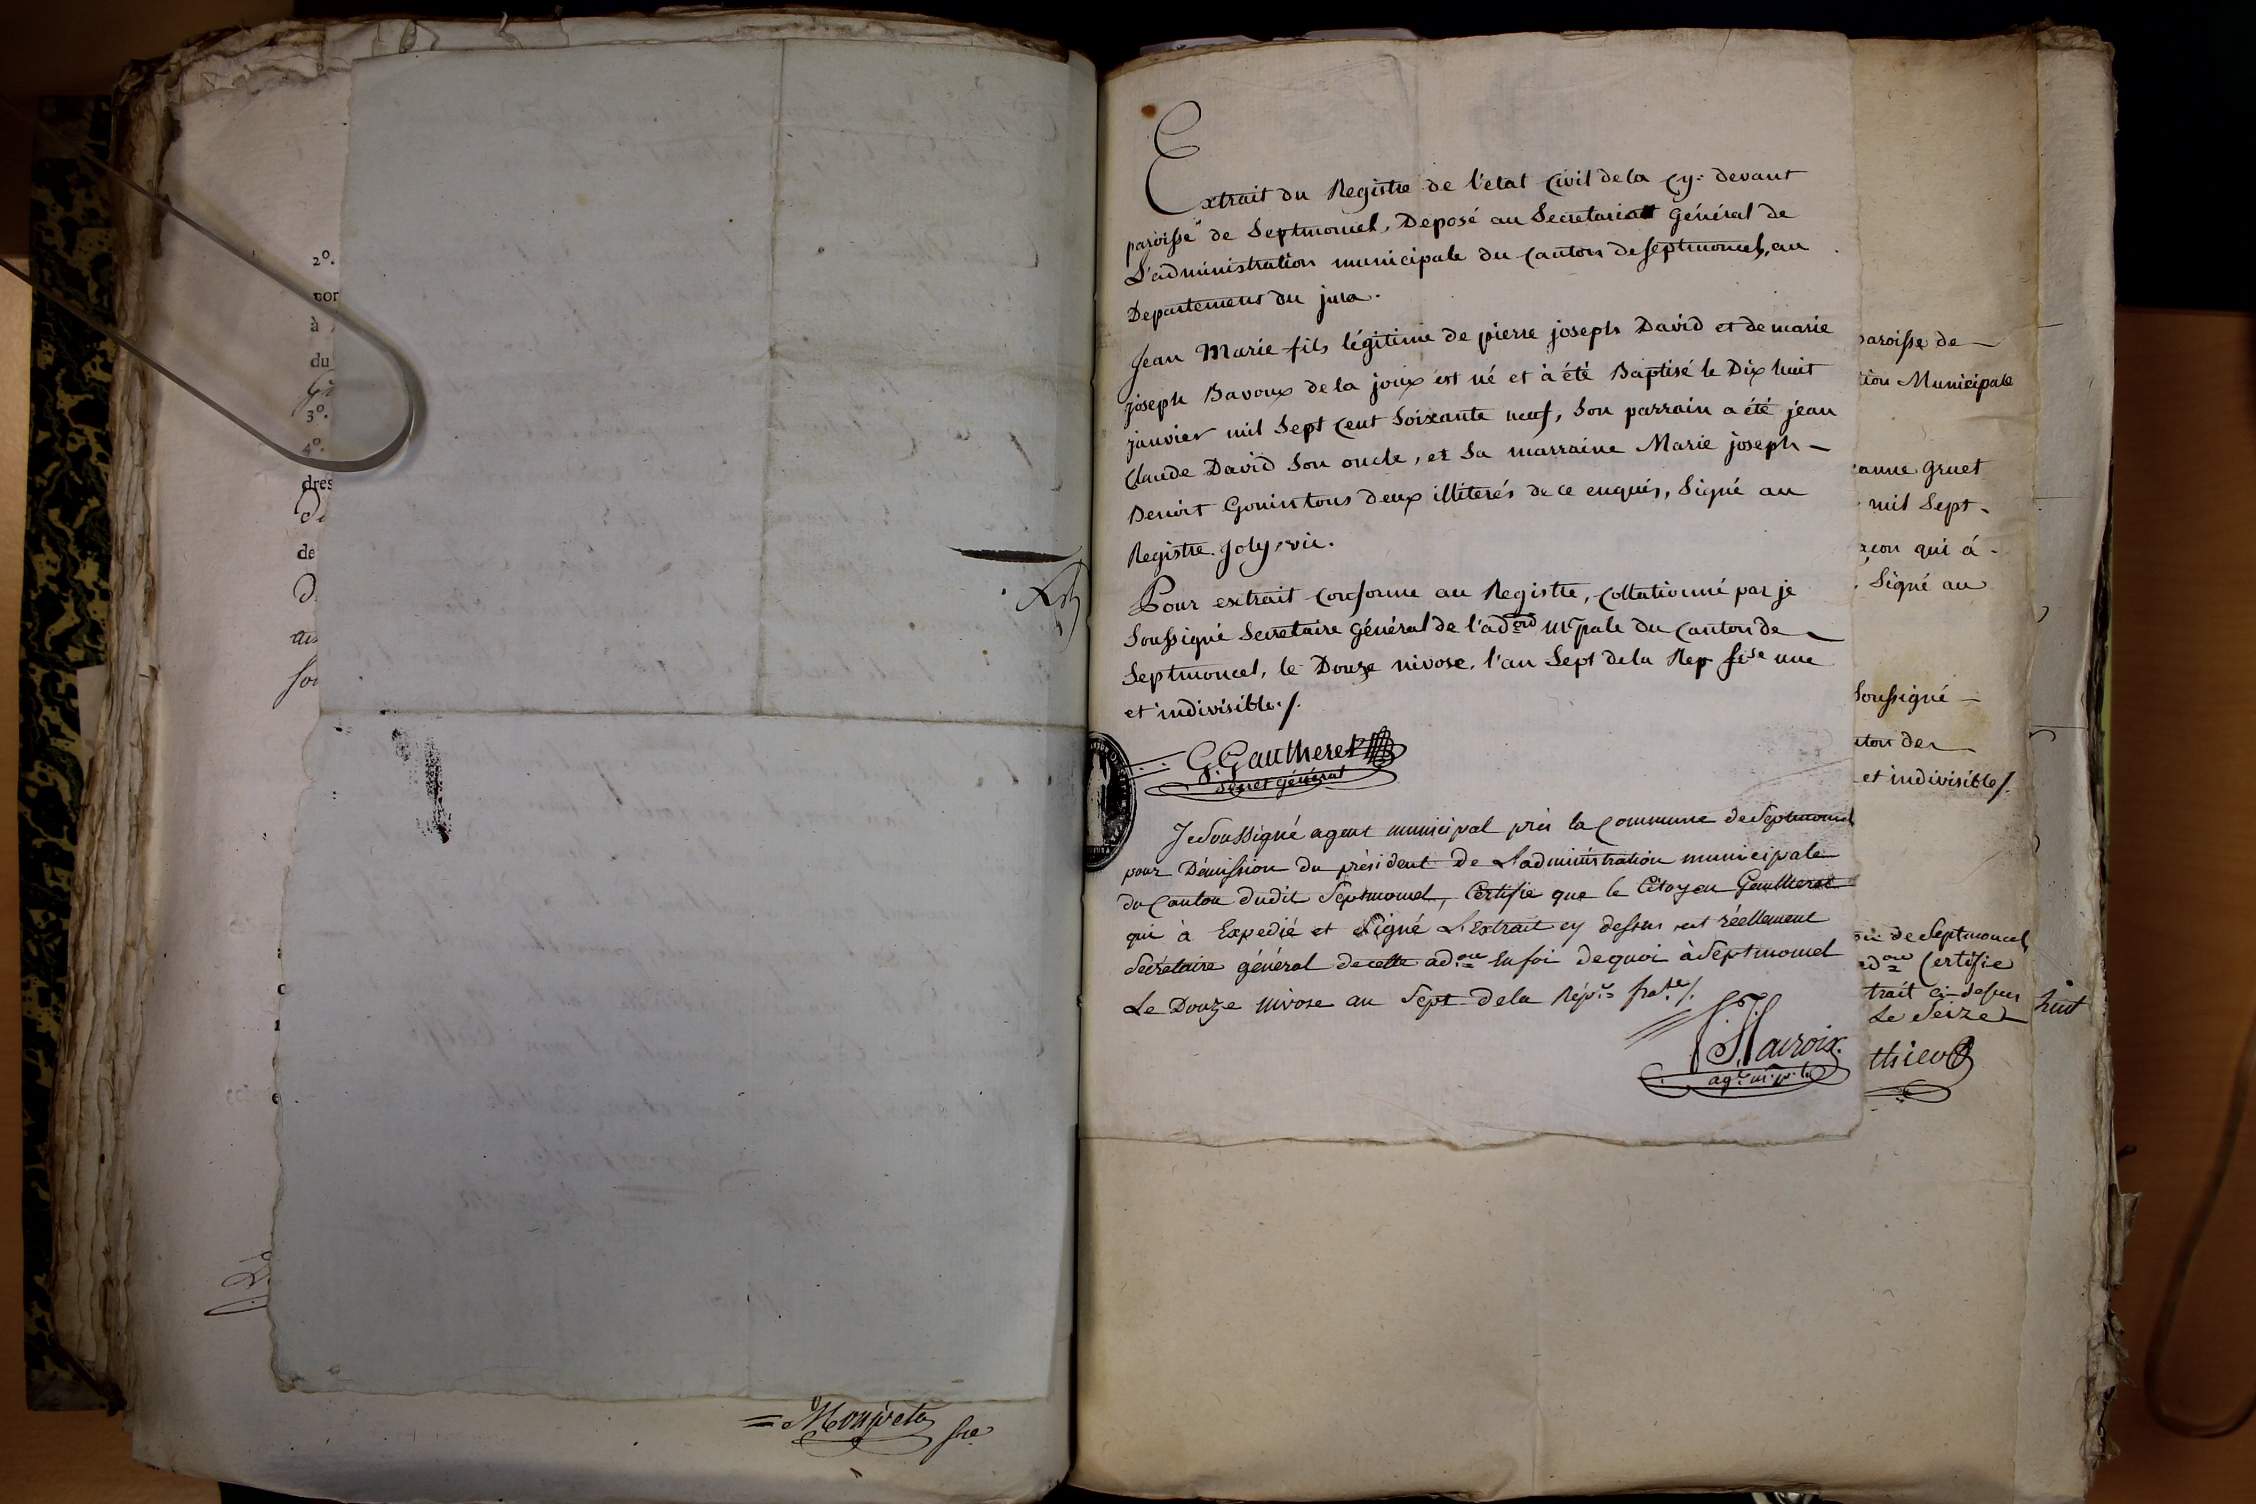 2º.
à
du
3º.
4º.
dres
de
Extrait du Registre de l'etat Civil de la cy: devant
paroisse de Septmoncel, Deposé au Secretariatt général de
L'administration municipale du canton de septmoncel, au
Departement du jura.
Jean Marie fils légitime de pierre joseph David et de marie
joseph Bavoux de la joux est né et à été Baptisé le Dix huit
janvier mil Sept Cent Soixante neuf, Son parrain a été jean
Claude David Son oncle, et Sa marraine Marie joseph —
Benoit Gonin tous deux illiterés de ce enquis, Signé au
Registre. Joly, vic.
Pour extrait conforme au Registre, collationné par je
Soussigné Secretaire Général de l'ad.on m.pale du Canton de
Septmoncel, le Douze nivose, l'an Sept de la Rep fr.se une
et indivisible./.
G. Gautheret
Secret général
Je Soussigné agent municipal près la Commune de Septmoncel
pour Démission du président de L'administration municipale
du Canton dudit Septmoncel, Certifie que le Citoyen Gautheret
qui à Expedié et Signé L'Extrait cy dessus est réellement
Secrétaire général de cette ad.on En foi de quoi à Septmoncel
Le Douze nivose an Sept de la Rép. fra.se/.
ag.t m.p.l
paroisse de —
tion Municipale
anne Gruet
mil Sept -
qui á -
Signé au
Soussigné —
et indivisible/.
de Septmoncel
ad.on Certifie
trait ci-dessus
Le Seize
huit